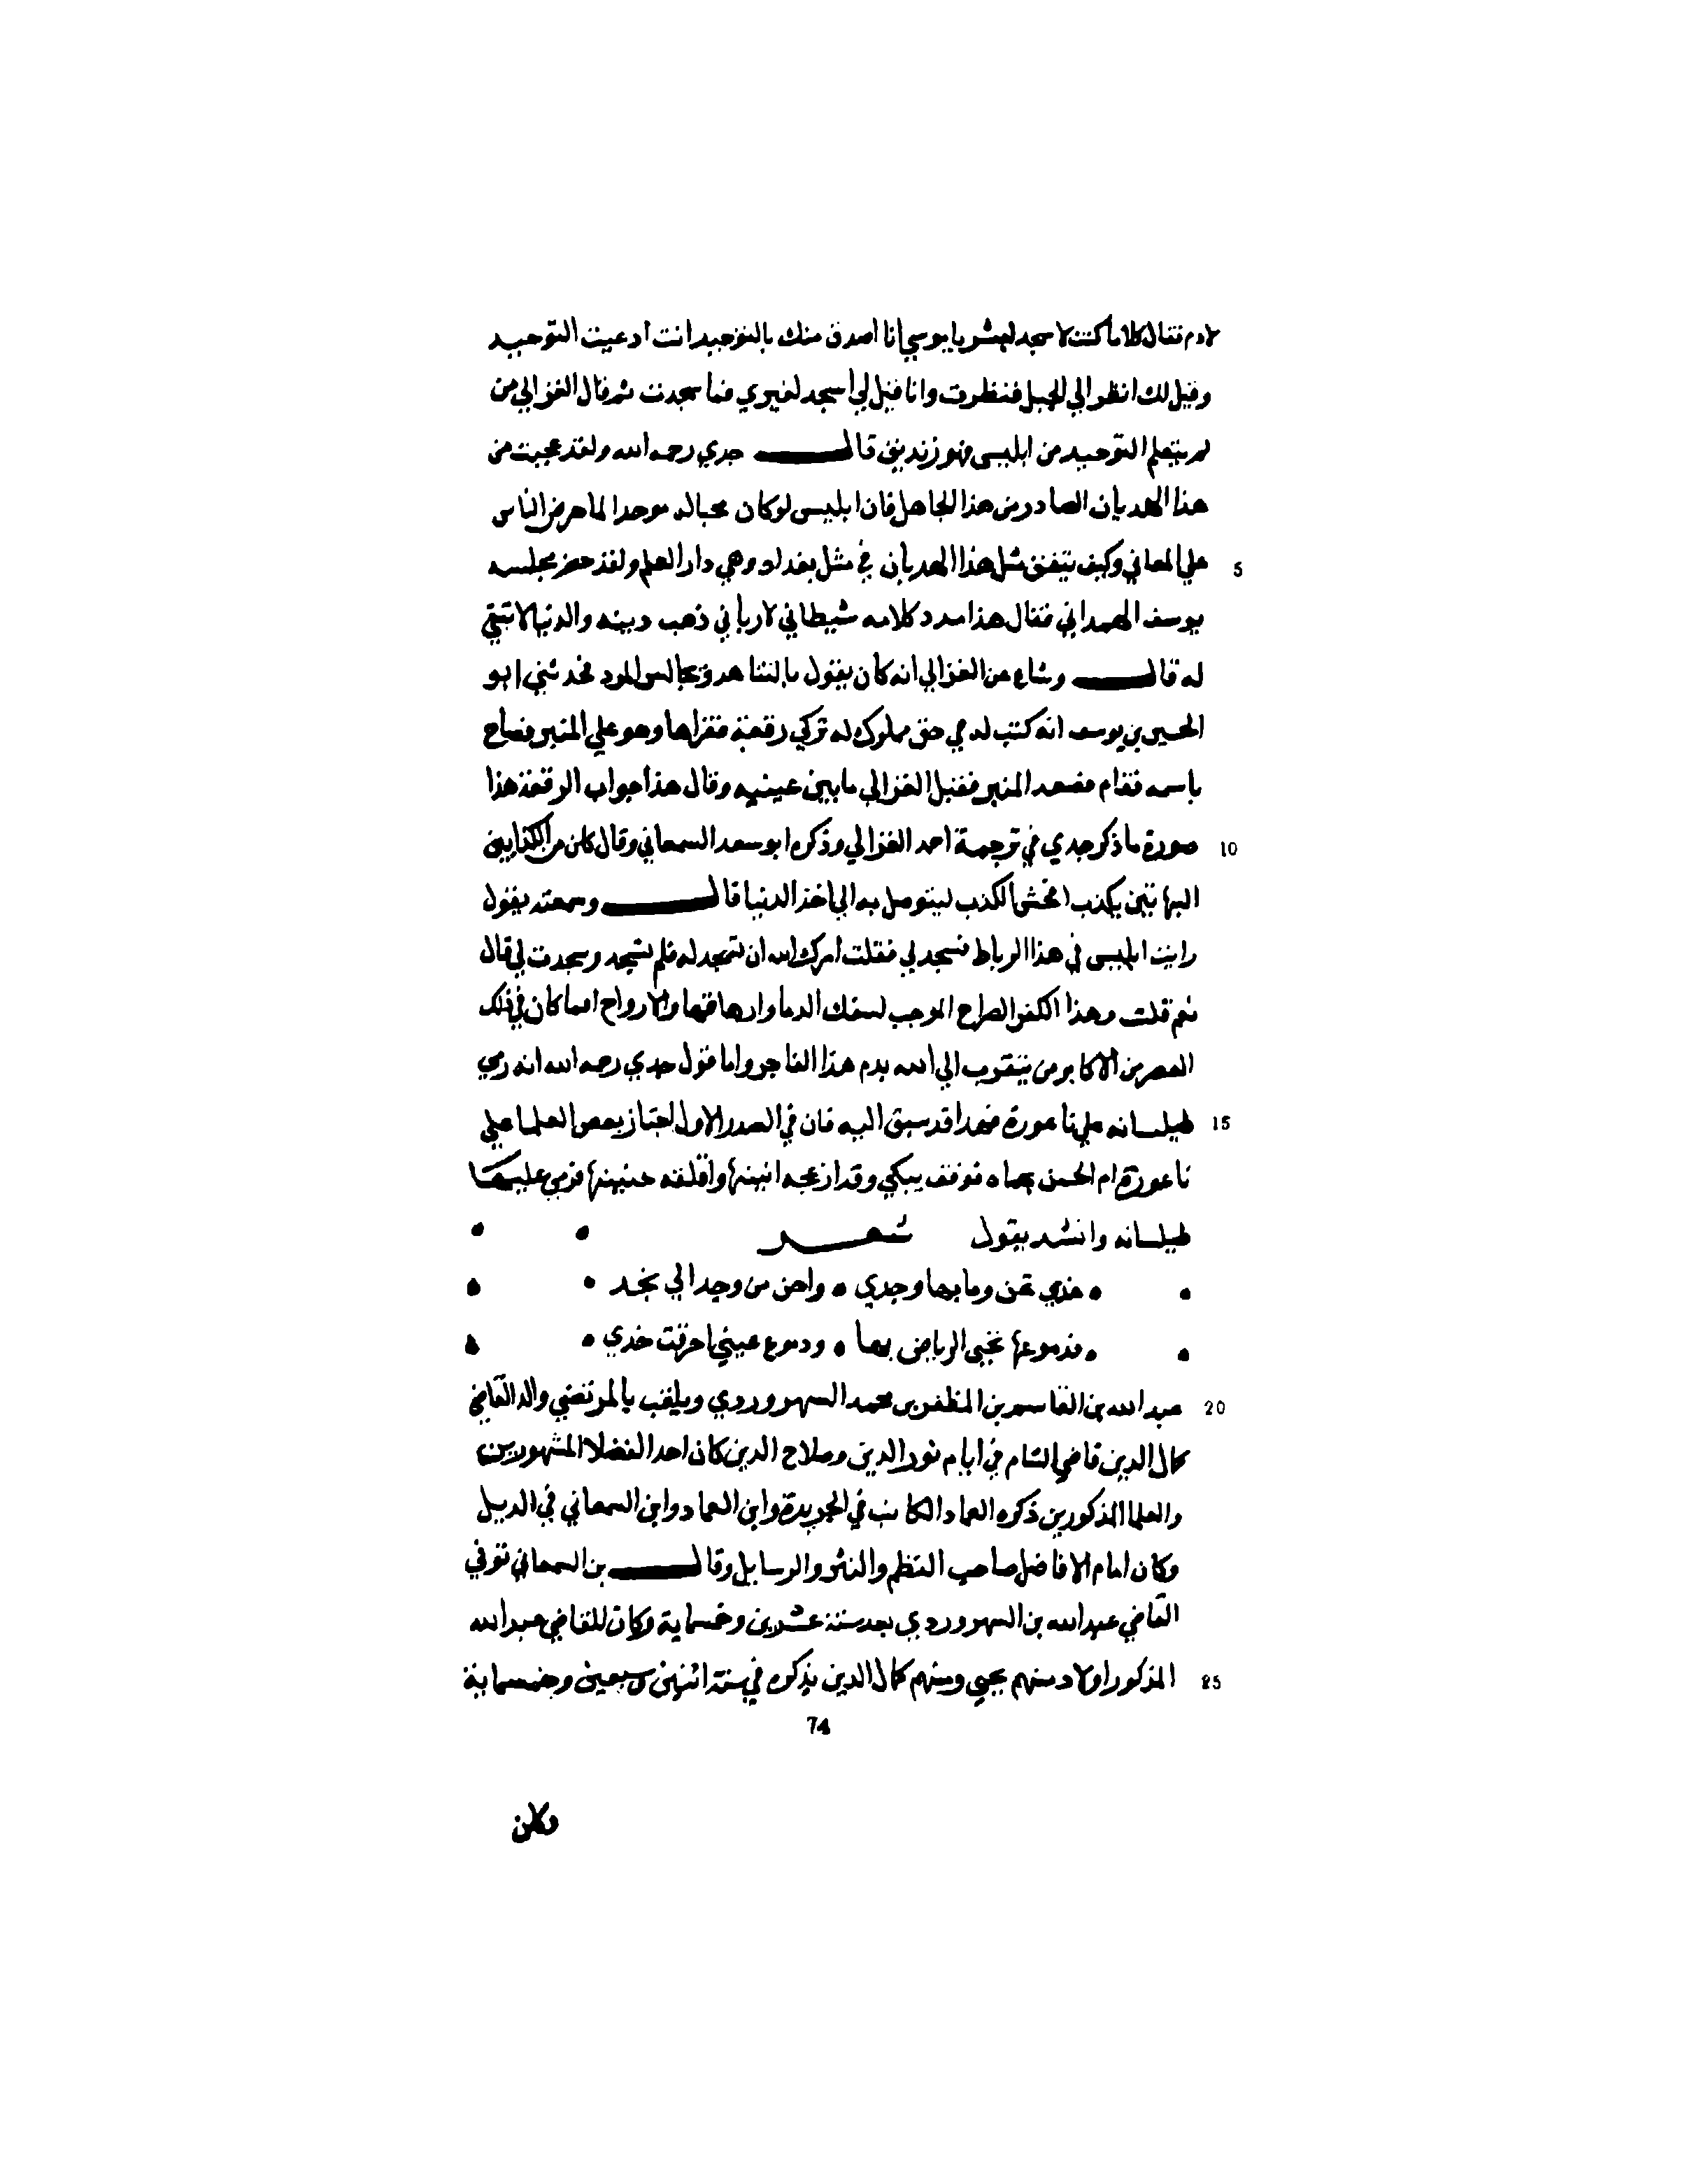 لادم فقال كلا ما كنت لاسجد لبشر يا موسى انا اصدق منك بالتوحيد انت ادعيت التوحيد
وقيل لك انظر الي الجبل فنظرت وانا قيل لي اسجد لغيري فما سجدت ثم قال الغزالي من
لم يتعلم التوحيد من ابليس فهو زنديق قال جدي رحمه الله ولقد عجبت من
هذا الهديان الصادر من هذا الجاهل فان ابليس لو كان محبا له موحدا لما حرض الناس
5 علي المعاصي وكيف يتفق مثل هذا الهديان في مثل بغداد وهي دار العلم ولقد حضر مجلسه
يوسف الهمداني فقال هذا مدد كلامه شيطاني لا رباني ذهب دينه والدنيا لا تبقي
له قال وشاع عن الغزالي انه كان يقول بالشاهد ويجالس المرد فحدثني ابو
الحسين بن يوسف انه كتب له في حق مملوك له تركي رقعة فقراها وهو علي المنبر فصاح
باسمه فقام فصعد المنبر فقبل الغزالي ما بين عينيه وقال هذا جواب الرقعة هذا
10 صورة ما ذكر جدي في ترجمة احمد الغزالي وذكره ابو سعد السمعاني وقال كان من الكذابين
يكذب افحش الكذب ليتوصل به الي اخذ الدنيا قال وسمعته يقول
رايت ابليس في هذا الرباط فسجد لي فقلت امرك الله ان تسجد له فلم تسجد وسجدت لي قال
نعم قلت وهذا الكفر الصراح الموجب لسفك الدما وازهاقها والارواح اما كان في ذلك
العصر من الاكابر من يتقرب الي الله بدم هذا الفاجر واما قول جدي رحمه الله انه رمي
15 طيلسانه علي ناعورة فهذا قد سبق اليه فان في الصدر الاول اجتاز بعض العلما علي
ناعورة ام الحسن بحماه فوقف يبكي وقد ازعجه انينها واقلقه حنينها فرمي عليها
طيلسانه وانشد يقول شعر
هذي تحن وما بها وجدي • واحن من وجد الي نجد
فدموعها تحيي الرياض بها • ودموع عيني احرقت خدي
20 عبد الله بن القاسم بن المظفر بن محمد السهروردي ويلقب بالمرتضي والد القاضي
كمال الدين قاضي الشام في ايام نور الدين وصلاح الدين كان احد الفضلا المشهورين
والعلما المذكورين ذكره العماد الكاتب في الخريدة وابن العماد وابن السمعاني في الذيل
وكان امام الافاضل صاحب النظم والنثر والرسايل وقال بن السمعاني توفي
القاضي عبد الله بن السهروردي بعد سنة عشرين وخمسماية وكان للقاضي عبد الله
25 المذكور اولاد منهم يحيي ومنهم كمال الدين يذكره في سنة اثنين وسبعين وخمسماية
74
وكان